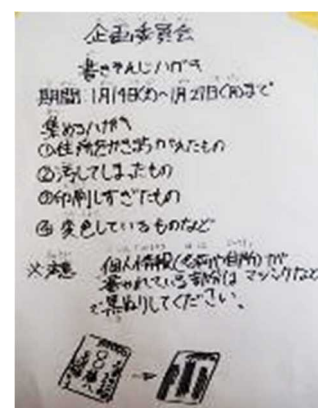 企画委員会
書きそんじハガキ
期間:1月14日(火)〜1月27日(月)まで
集めるハガキ
①住所をかきまちがえたもの
②汚してしまったもの
③印刷しすぎたもの
④変色しているものなど
※注意 個人情報(名前や住所)が
書かれている部分は マジックなど
で黒ぬりしてください。